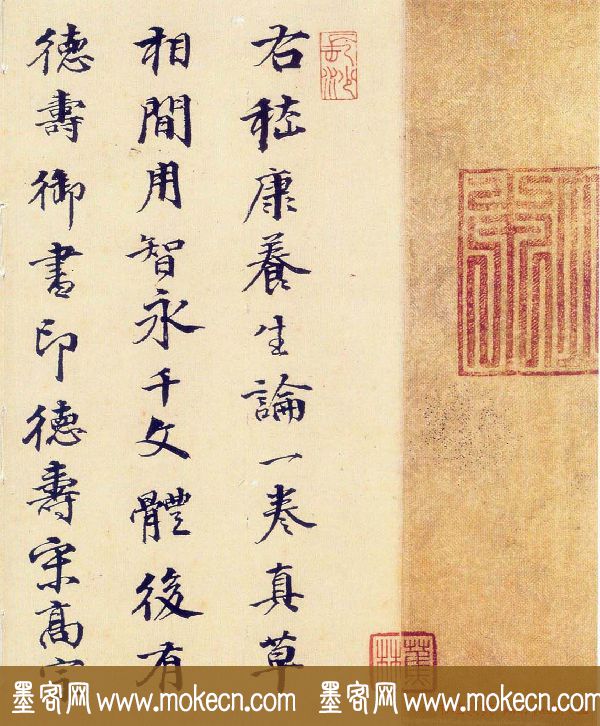 右嵇康養生論一卷真草
相間用智永千文體後有
德壽御書印德壽宋高宗
長沙
蕉林
墨客网 www.mokecn.com 墨客网 www.mokecn.com